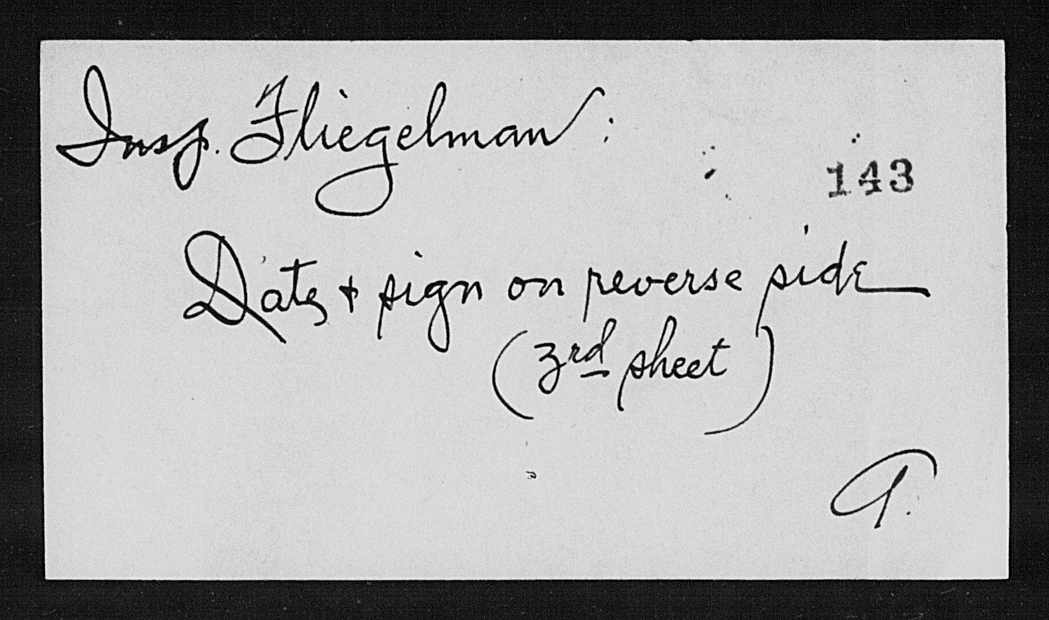 Insp. Fliegelman:
143
Date + sign on reverse side
(3rd sheet)